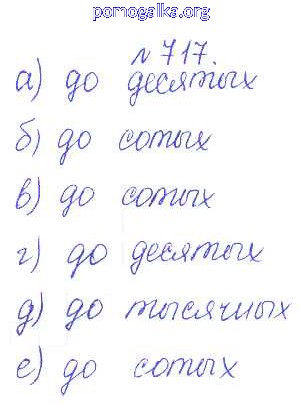 pomogalka.org
№ 717.
а) до десятых
б) до сотых
в) до сотых
г) до десятых
д) до тысячных
е) до сотых